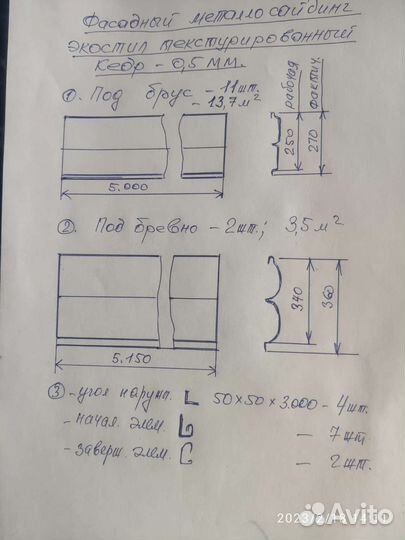 Фасадный металлосайдинг
экостил текстурированный
Кедр - 0,5 мм.
① Под брус - 11 шт.
- 13,7 м²
рабочая
фактич.
250
270
5.000
② Под бревно - 2 шт.; 3,5 м²
340
360
5.150
③ - угол наружн. L 50×50×3.000 - 4 шт.
- начал. элем. - 7 шт
- заверш. элем. - 2 шт.
Avito